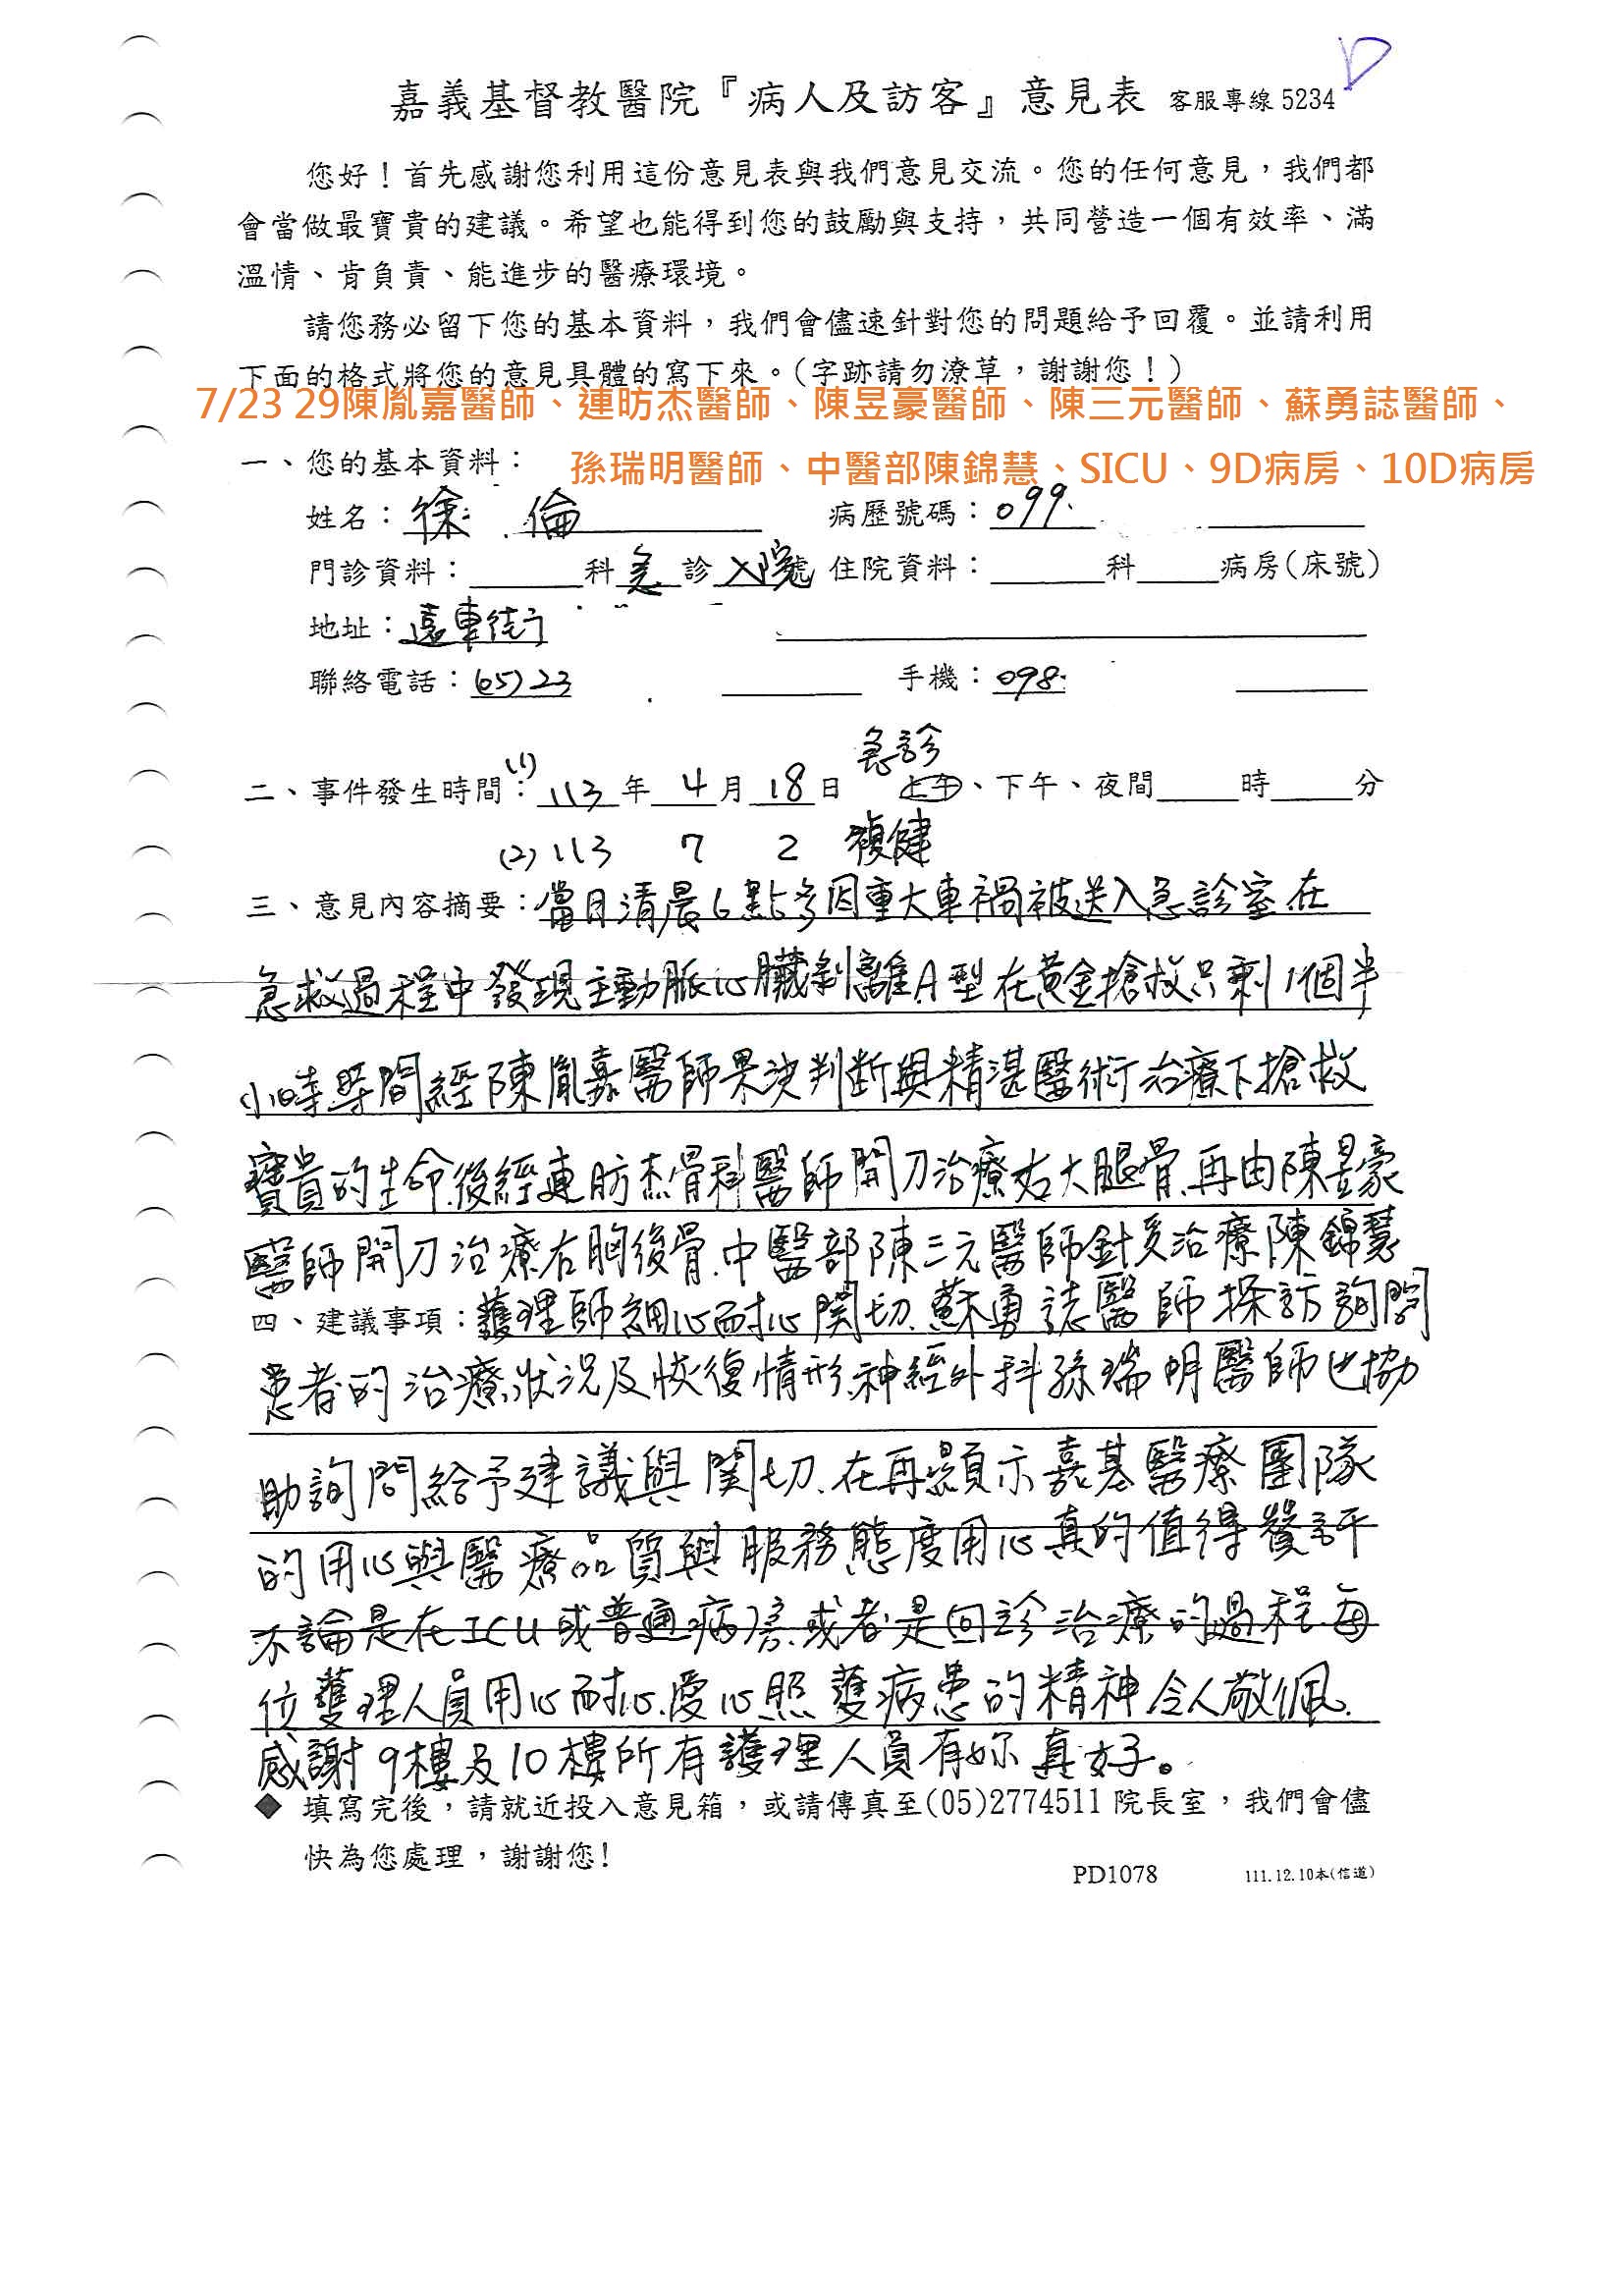 嘉義基督教醫院『病人及訪客』意見表 客服專線 5234
您好!首先感謝您利用這份意見表與我們意見交流。您的任何意見,我們都
會當做最寶貴的建議。希望也能得到您的鼓勵與支持,共同營造一個有效率、滿
溫情、肯負責、能進步的醫療環境。
請您務必留下您的基本資料,我們會儘速針對您的問題給予回覆。並請利用
下面的格式將您的意見具體的寫下來。(字跡請勿潦草,謝謝您!)
7/23 29陳胤嘉醫師、連昉杰醫師、陳昱豪醫師、陳三元醫師、蘇勇誌醫師、
一、您的基本資料: 孫瑞明醫師、中醫部陳錦慧、SICU、9D病房、10D病房
姓名:徐 倫 病歷號碼:099
門診資料: 科急診入院號 住院資料: 科 病房(床號)
地址:遠東街
聯絡電話:(05)23 手機:098
急診
二、事件發生時間:(1) 113年4月18日 上午、下午、夜間 時 分
(2) 113 7 2 複健
三、意見內容摘要:當日清晨6點多因重大車禍被送入急診室.在
急救過程中發現主動脈心臟剝離A型在黃金搶救只剩1個半
小時時間經陳胤嘉醫師果決判斷與精湛醫術治療下搶救
寶貴的生命.後經連昉杰骨科醫師開刀治療右大腿骨.再由陳昱豪
醫師開刀治療右胸後骨.中醫部陳三元醫師針灸治療陳錦慧
四、建議事項:護理師細心耐心關切.蘇勇誌醫師探訪詢問
患者的治療狀況及恢復情形.神經外科孫瑞明醫師也協
助詢問給予建議與關切.在再顯示嘉基醫療團隊
的用心與醫療品質與服務態度用心真的值得贊評
不論是在ICU或普通病房.或者是回診治療的過程.每
位護理人員用心耐心.愛心照護病患的精神令人敬佩.
感謝9樓及10樓所有護理人員有妳真好。
◆ 填寫完後,請就近投入意見箱,或請傳真至(05)2774511院長室,我們會儘
快為您處理,謝謝您!
PD1078 111.12.10本(信道)